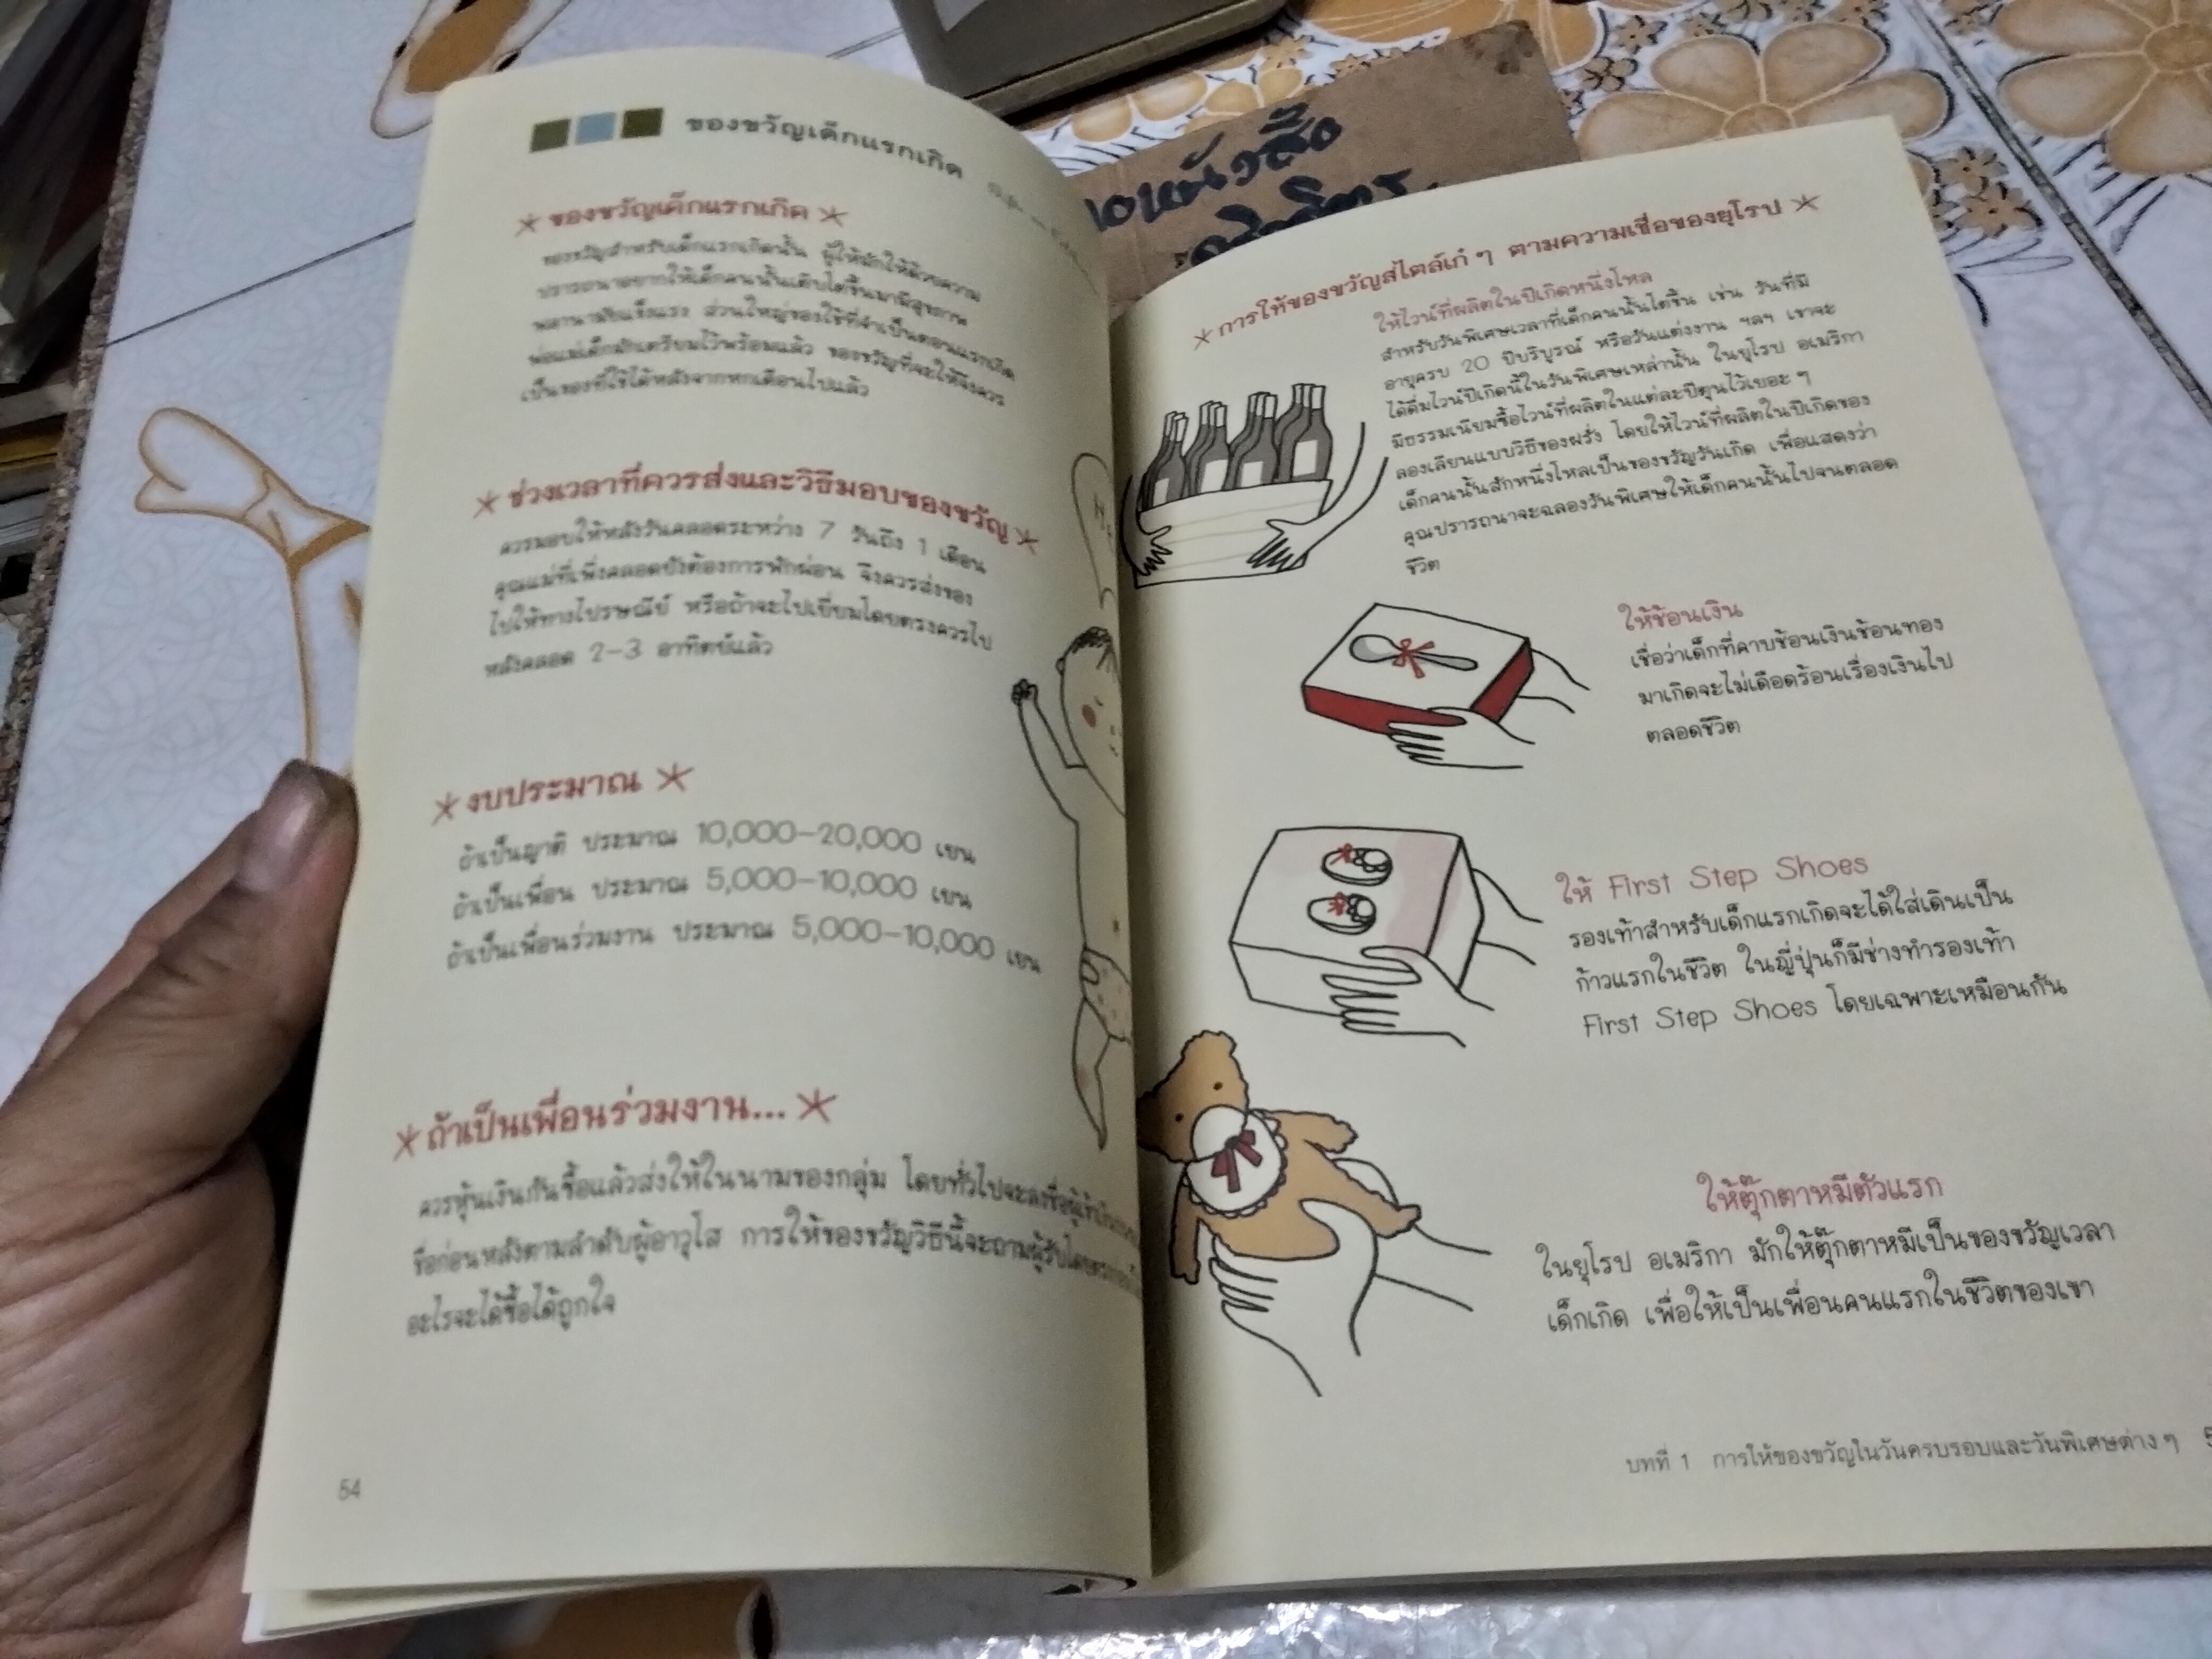 ของขวัญเด็กแรกเกิด
ของขวัญเด็กแรกเกิด
ของขวัญสำหรับเด็กแรกเกิดนั้น ผู้ให้มักให้ด้วยความ
ปรารถนาอยากให้เด็กคนนั้นเติบโตขึ้นมามีสุขภาพ
พลานามัยแข็งแรง ส่วนใหญ่ของใช้ที่จำเป็นตอนแรกเกิด
พ่อแม่เด็กมักเตรียมไว้พร้อมแล้ว ของขวัญที่จะให้จึงควร
เป็นของที่ใช้ได้หลังจากหกเดือนไปแล้ว
ช่วงเวลาที่ควรส่งและวิธีมอบของขวัญ
ควรมอบให้หลังวันคลอดระหว่าง 7 วันถึง 1 เดือน
คุณแม่ที่เพิ่งคลอดยังต้องการพักผ่อน จึงควรส่งของ
ไปให้ทางไปรษณีย์ หรือถ้าจะไปเยี่ยมโดยตรงควรไป
หลังคลอด 2-3 อาทิตย์แล้ว
งบประมาณ
ถ้าเป็นญาติ ประมาณ 10,000-20,000 เยน
ถ้าเป็นเพื่อน ประมาณ 5,000-10,000 เยน
ถ้าเป็นเพื่อนร่วมงาน ประมาณ 5,000-10,000 เยน
ถ้าเป็นเพื่อนร่วมงาน...
ควรหุ้นเงินกันซื้อแล้วส่งให้ในนามของกลุ่ม โดยทั่วไปจะลงชื่อผู้
ชื่อก่อนหลังตามลำดับผู้อาวุโส การให้ของขวัญวิธีนี้จะถามผู้รับโดยตรง
อะไรจะได้ซื้อได้ถูกใจ
54
การให้ของขวัญสไตล์เก๋ๆ ตามความเชื่อของยุโรป
ให้ไวน์ที่ผลิตในปีเกิดหนึ่งโหล
สำหรับวันพิเศษเวลาที่เด็กคนนั้นโตขึ้น เช่น วันที่มี
อายุครบ 20 ปีบริบูรณ์ หรือวันแต่งงาน ฯลฯ เขาจะ
ได้ดื่มไวน์ปีเกิดนี้ในวันพิเศษเหล่านั้น ในยุโรป อเมริกา
มีธรรมเนียมซื้อไวน์ที่ผลิตในแต่ละปีตุนไว้เยอะๆ
ลองเลียนแบบวิธีของฝรั่ง โดยให้ไวน์ที่ผลิตในปีเกิดของ
เด็กคนนั้นสักหนึ่งโหลเป็นของขวัญวันเกิด เพื่อแสดงว่า
คุณปรารถนาจะฉลองวันพิเศษให้เด็กคนนั้นไปจนตลอด
ชีวิต
ให้ช้อนเงิน
เชื่อว่าเด็กที่คาบช้อนเงินช้อนทอง
มาเกิดจะไม่เดือดร้อนเรื่องเงินไป
ตลอดชีวิต
ให้ First Step Shoes
รองเท้าสำหรับเด็กแรกเกิดจะได้ใส่เดินเป็น
ก้าวแรกในชีวิต ในญี่ปุ่นก็มีช่างทำรองเท้า
First Step Shoes โดยเฉพาะเหมือนกัน
ให้ตุ๊กตาหมีตัวแรก
ในยุโรป อเมริกา มักให้ตุ๊กตาหมีเป็นของขวัญเวลา
เด็กเกิด เพื่อให้เป็นเพื่อนคนแรกในชีวิตของเขา
บทที่ 1 การให้ของขวัญในวันครบรอบและวันพิเศษต่างๆ